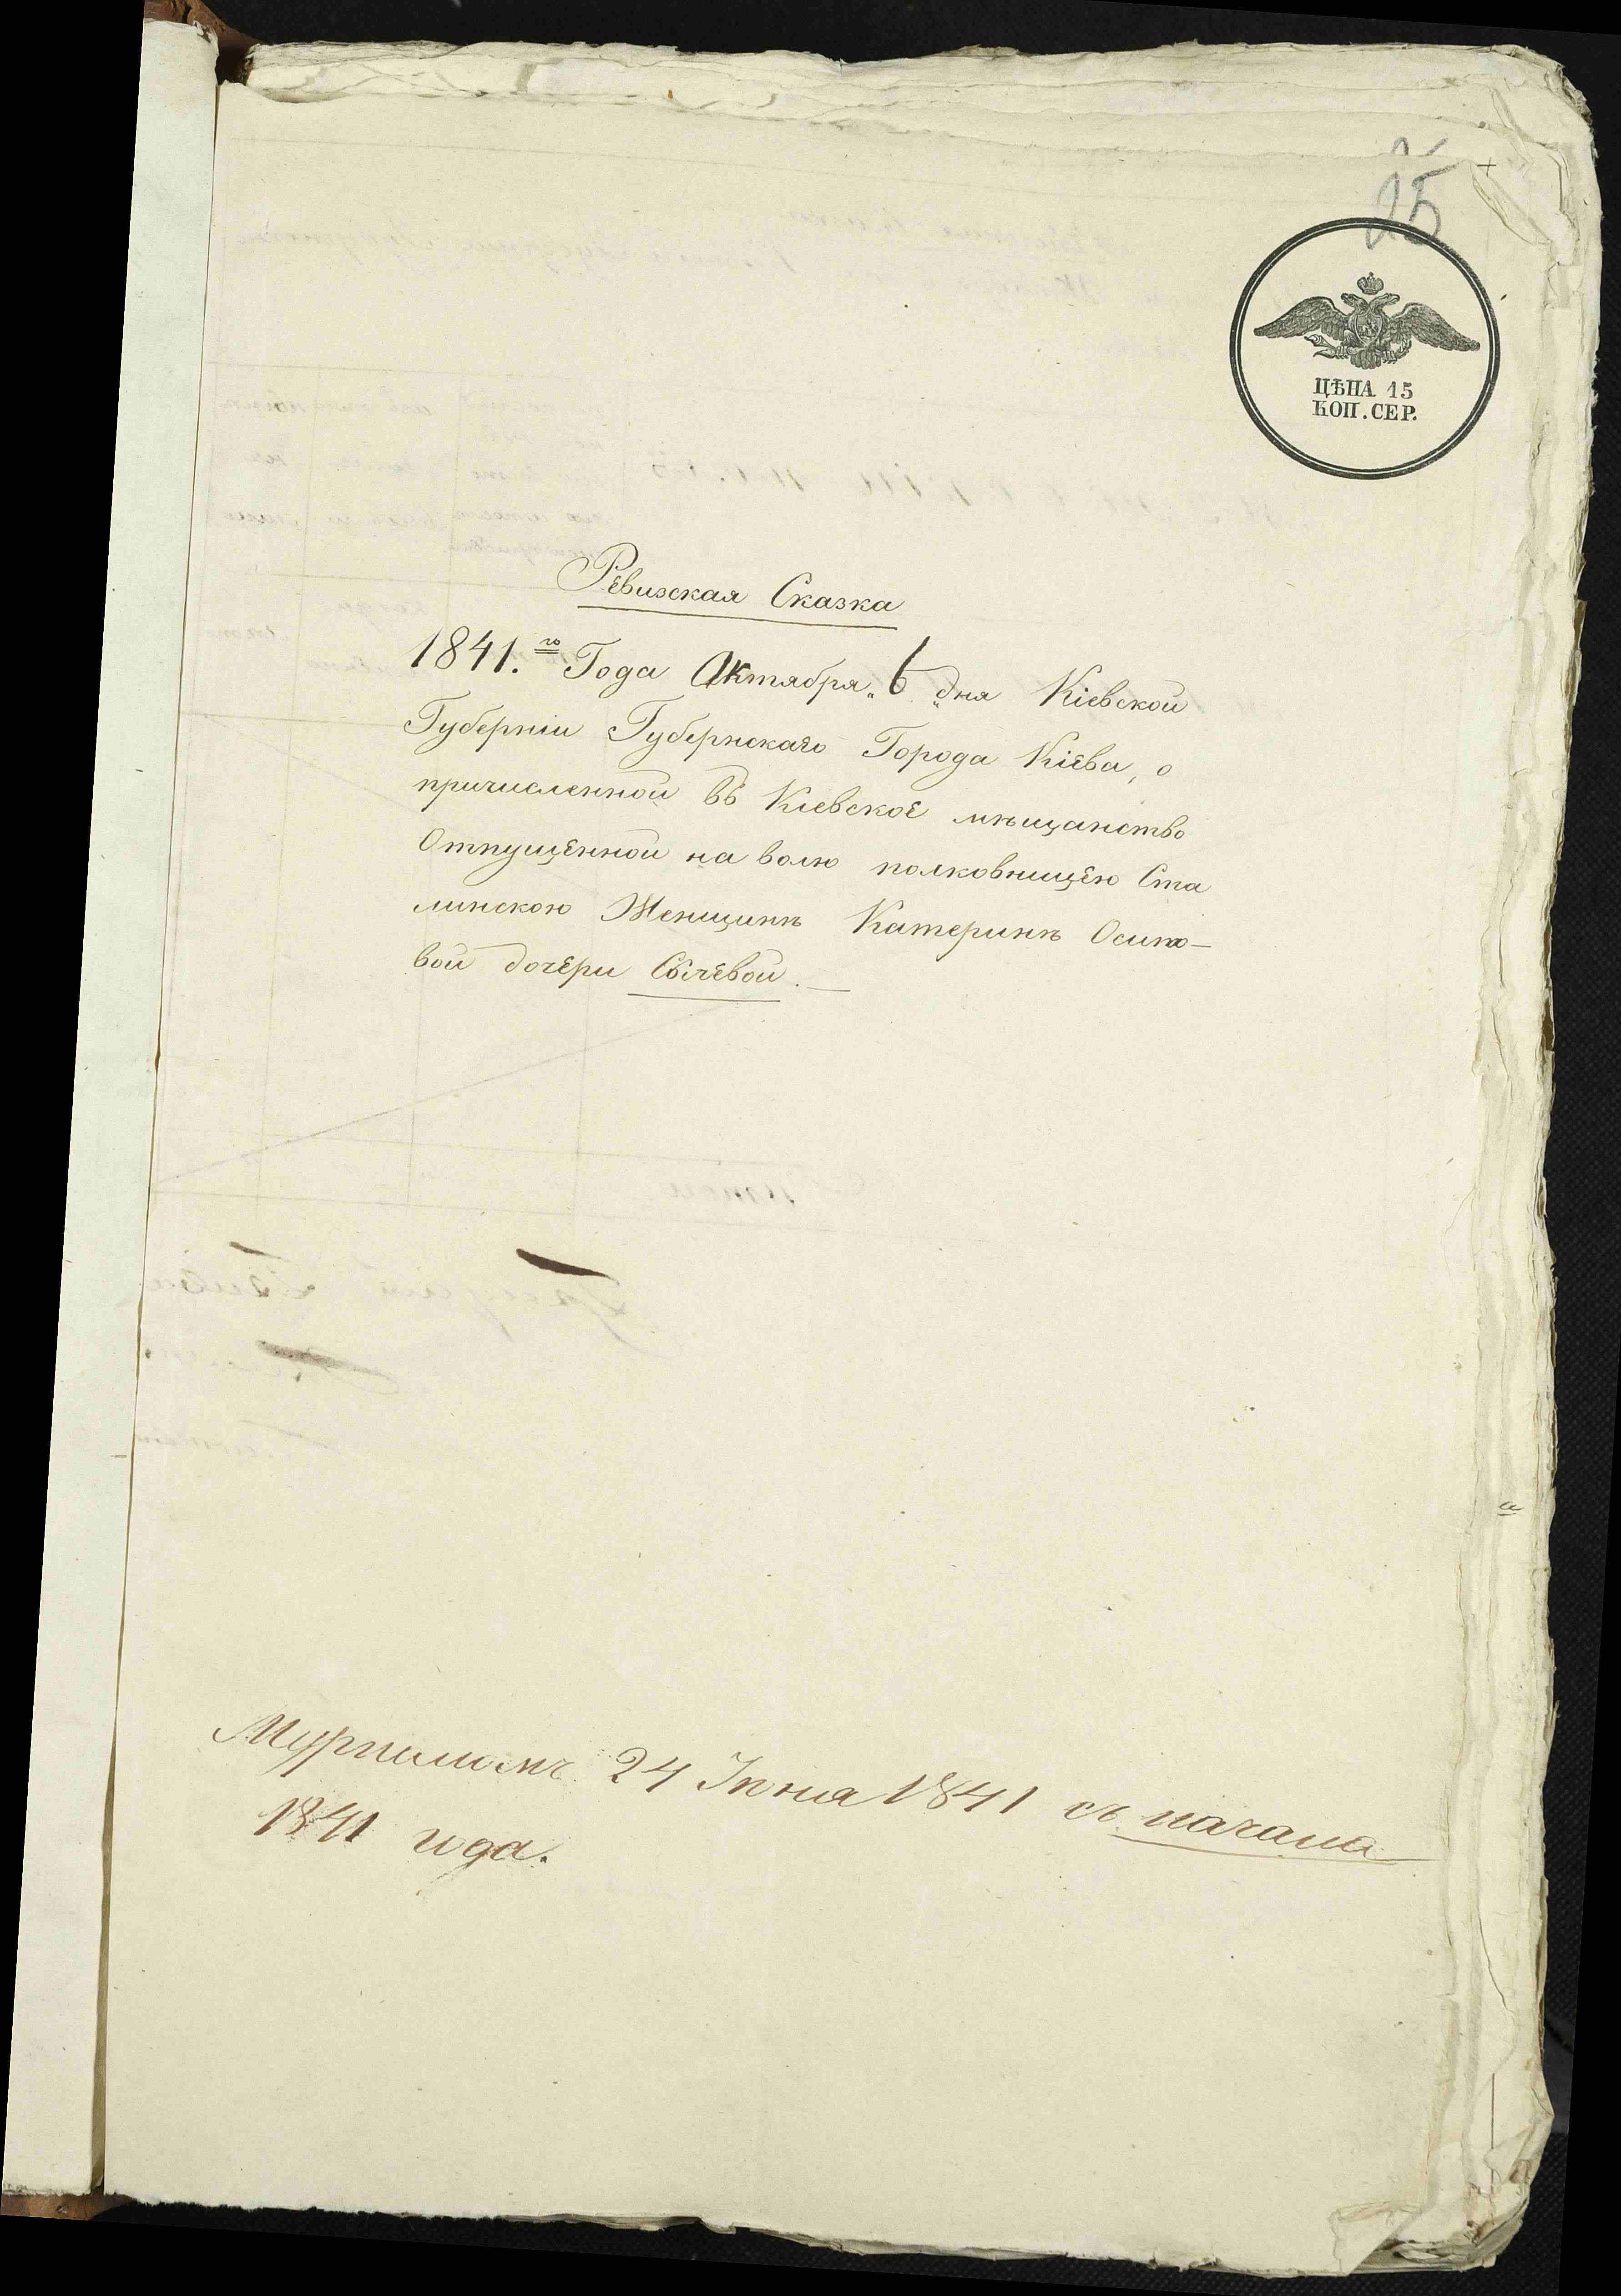 25
ЦѢНА 15
КОП. СЕР.
Ревизская Сказка
1841.го Года Октября „6„ дня Кіевской
Губерніи Губернскаго Города Кіева, о
причисленной въ Кіевское мѣщанство
Отпущенной на волю полковницею Ста
линскою Женщинѣ Катеринѣ Осипо-
вой дочери Сычевой. —
24 Іюня 1841 съ начала
1841 года.